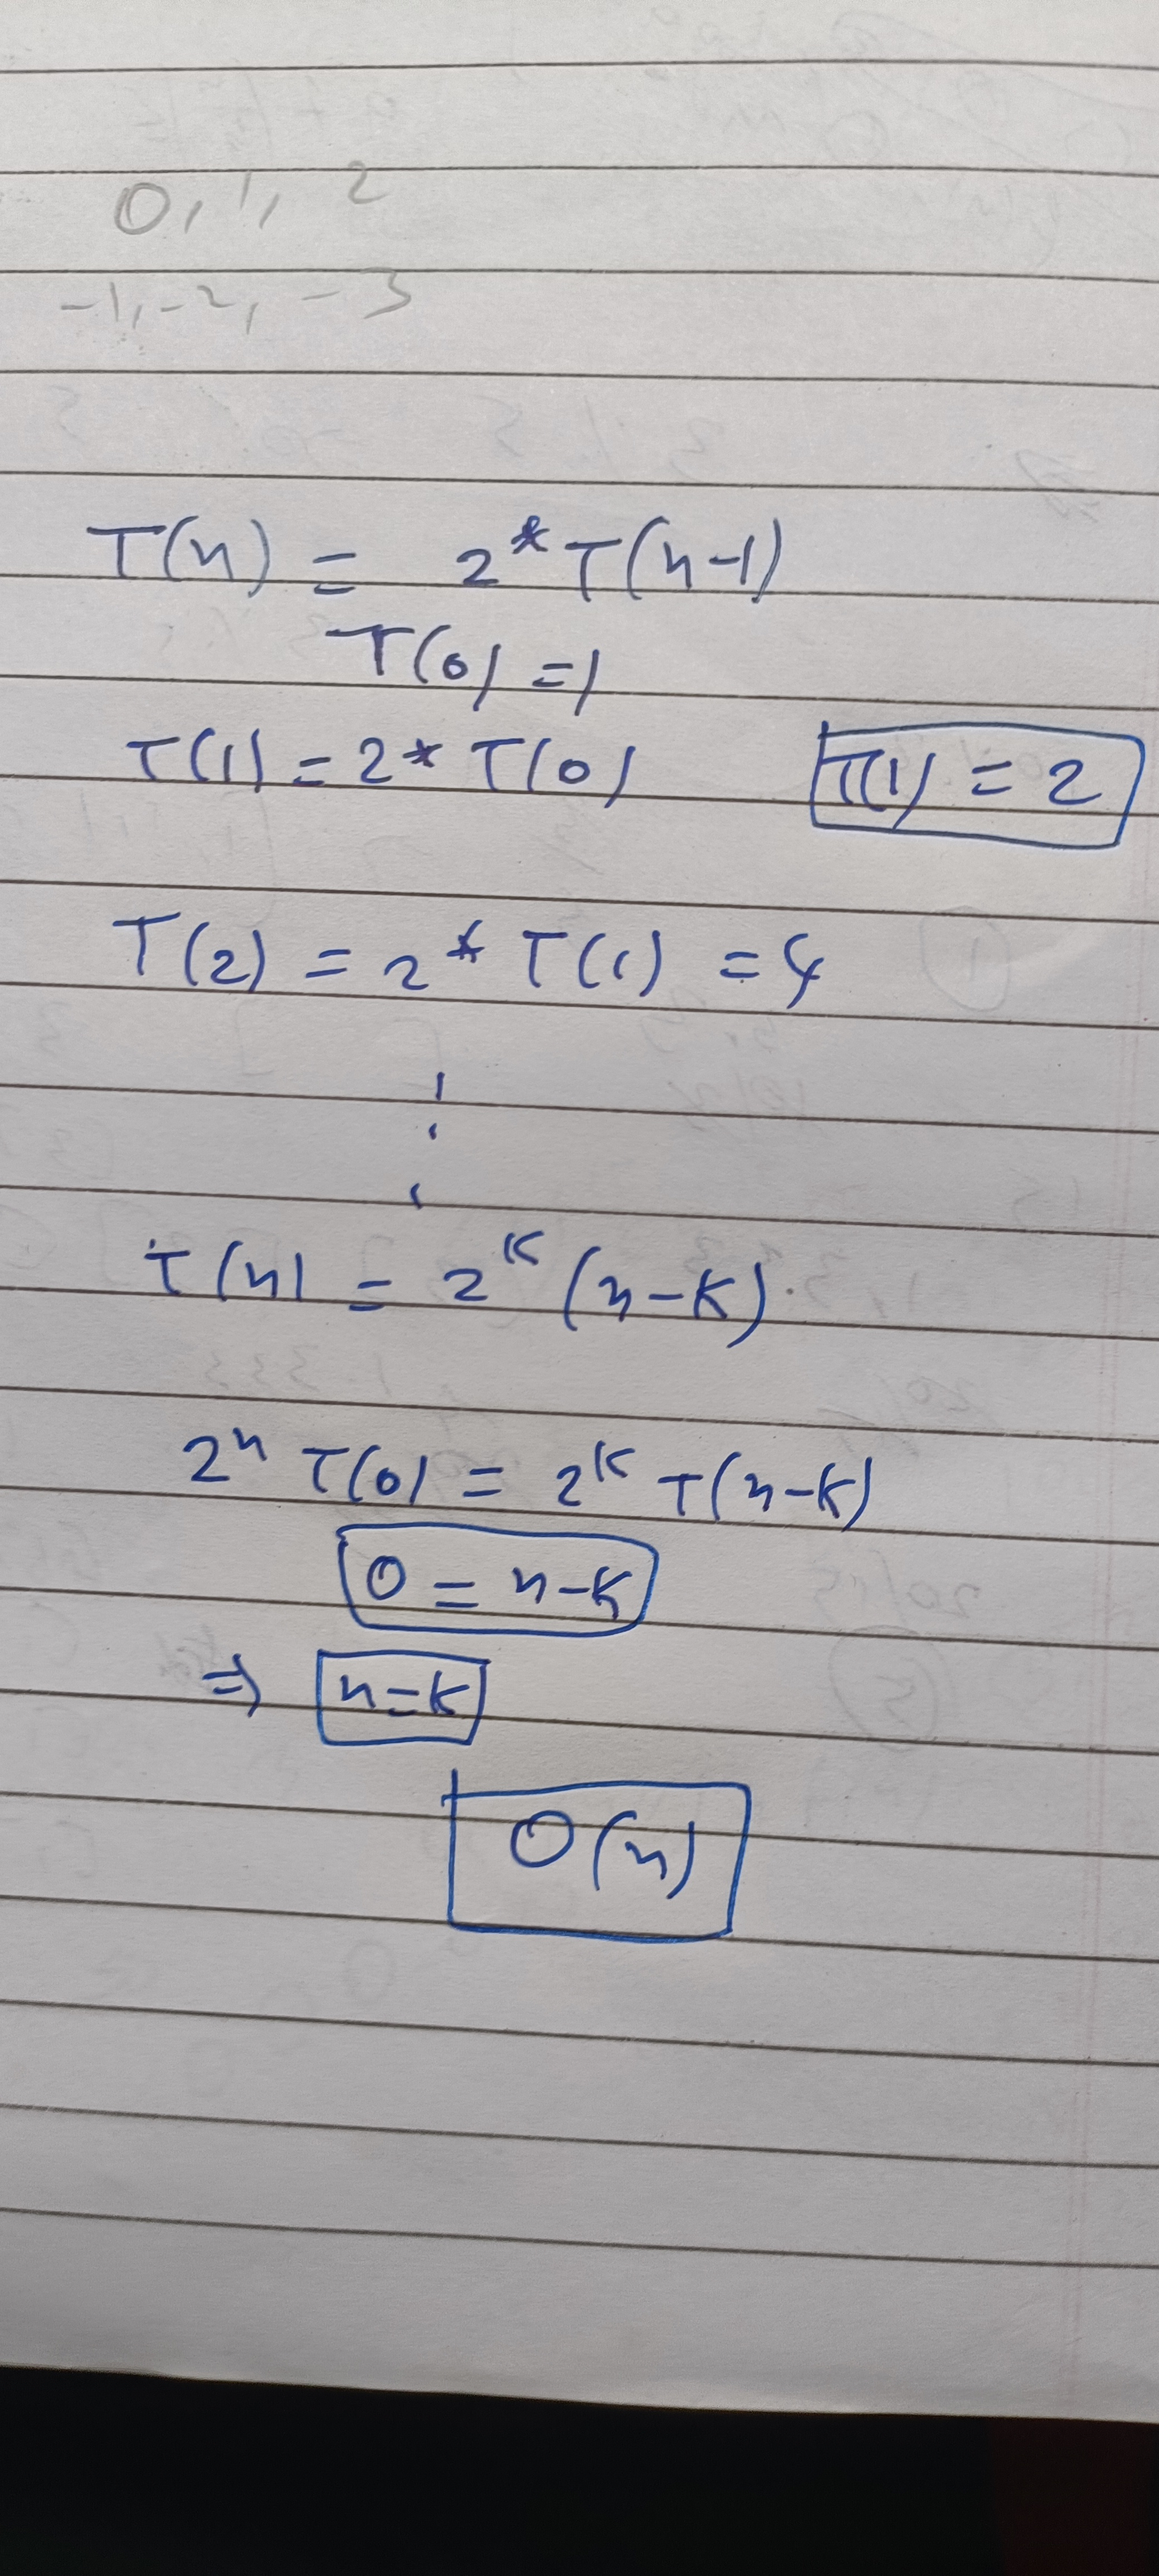 0, 1, 2
-1, -2, -3
T(n) = 2*T(n-1)
T(0) = 1
T(1) = 2* T(0) T(1) = 2
T(2) = 2* T(1) = 4
⋮
T(n) = 2^K (n-K).
2^n T(0) = 2^K T(n-K)
0 = n-K
⇒ n=K
O(n)